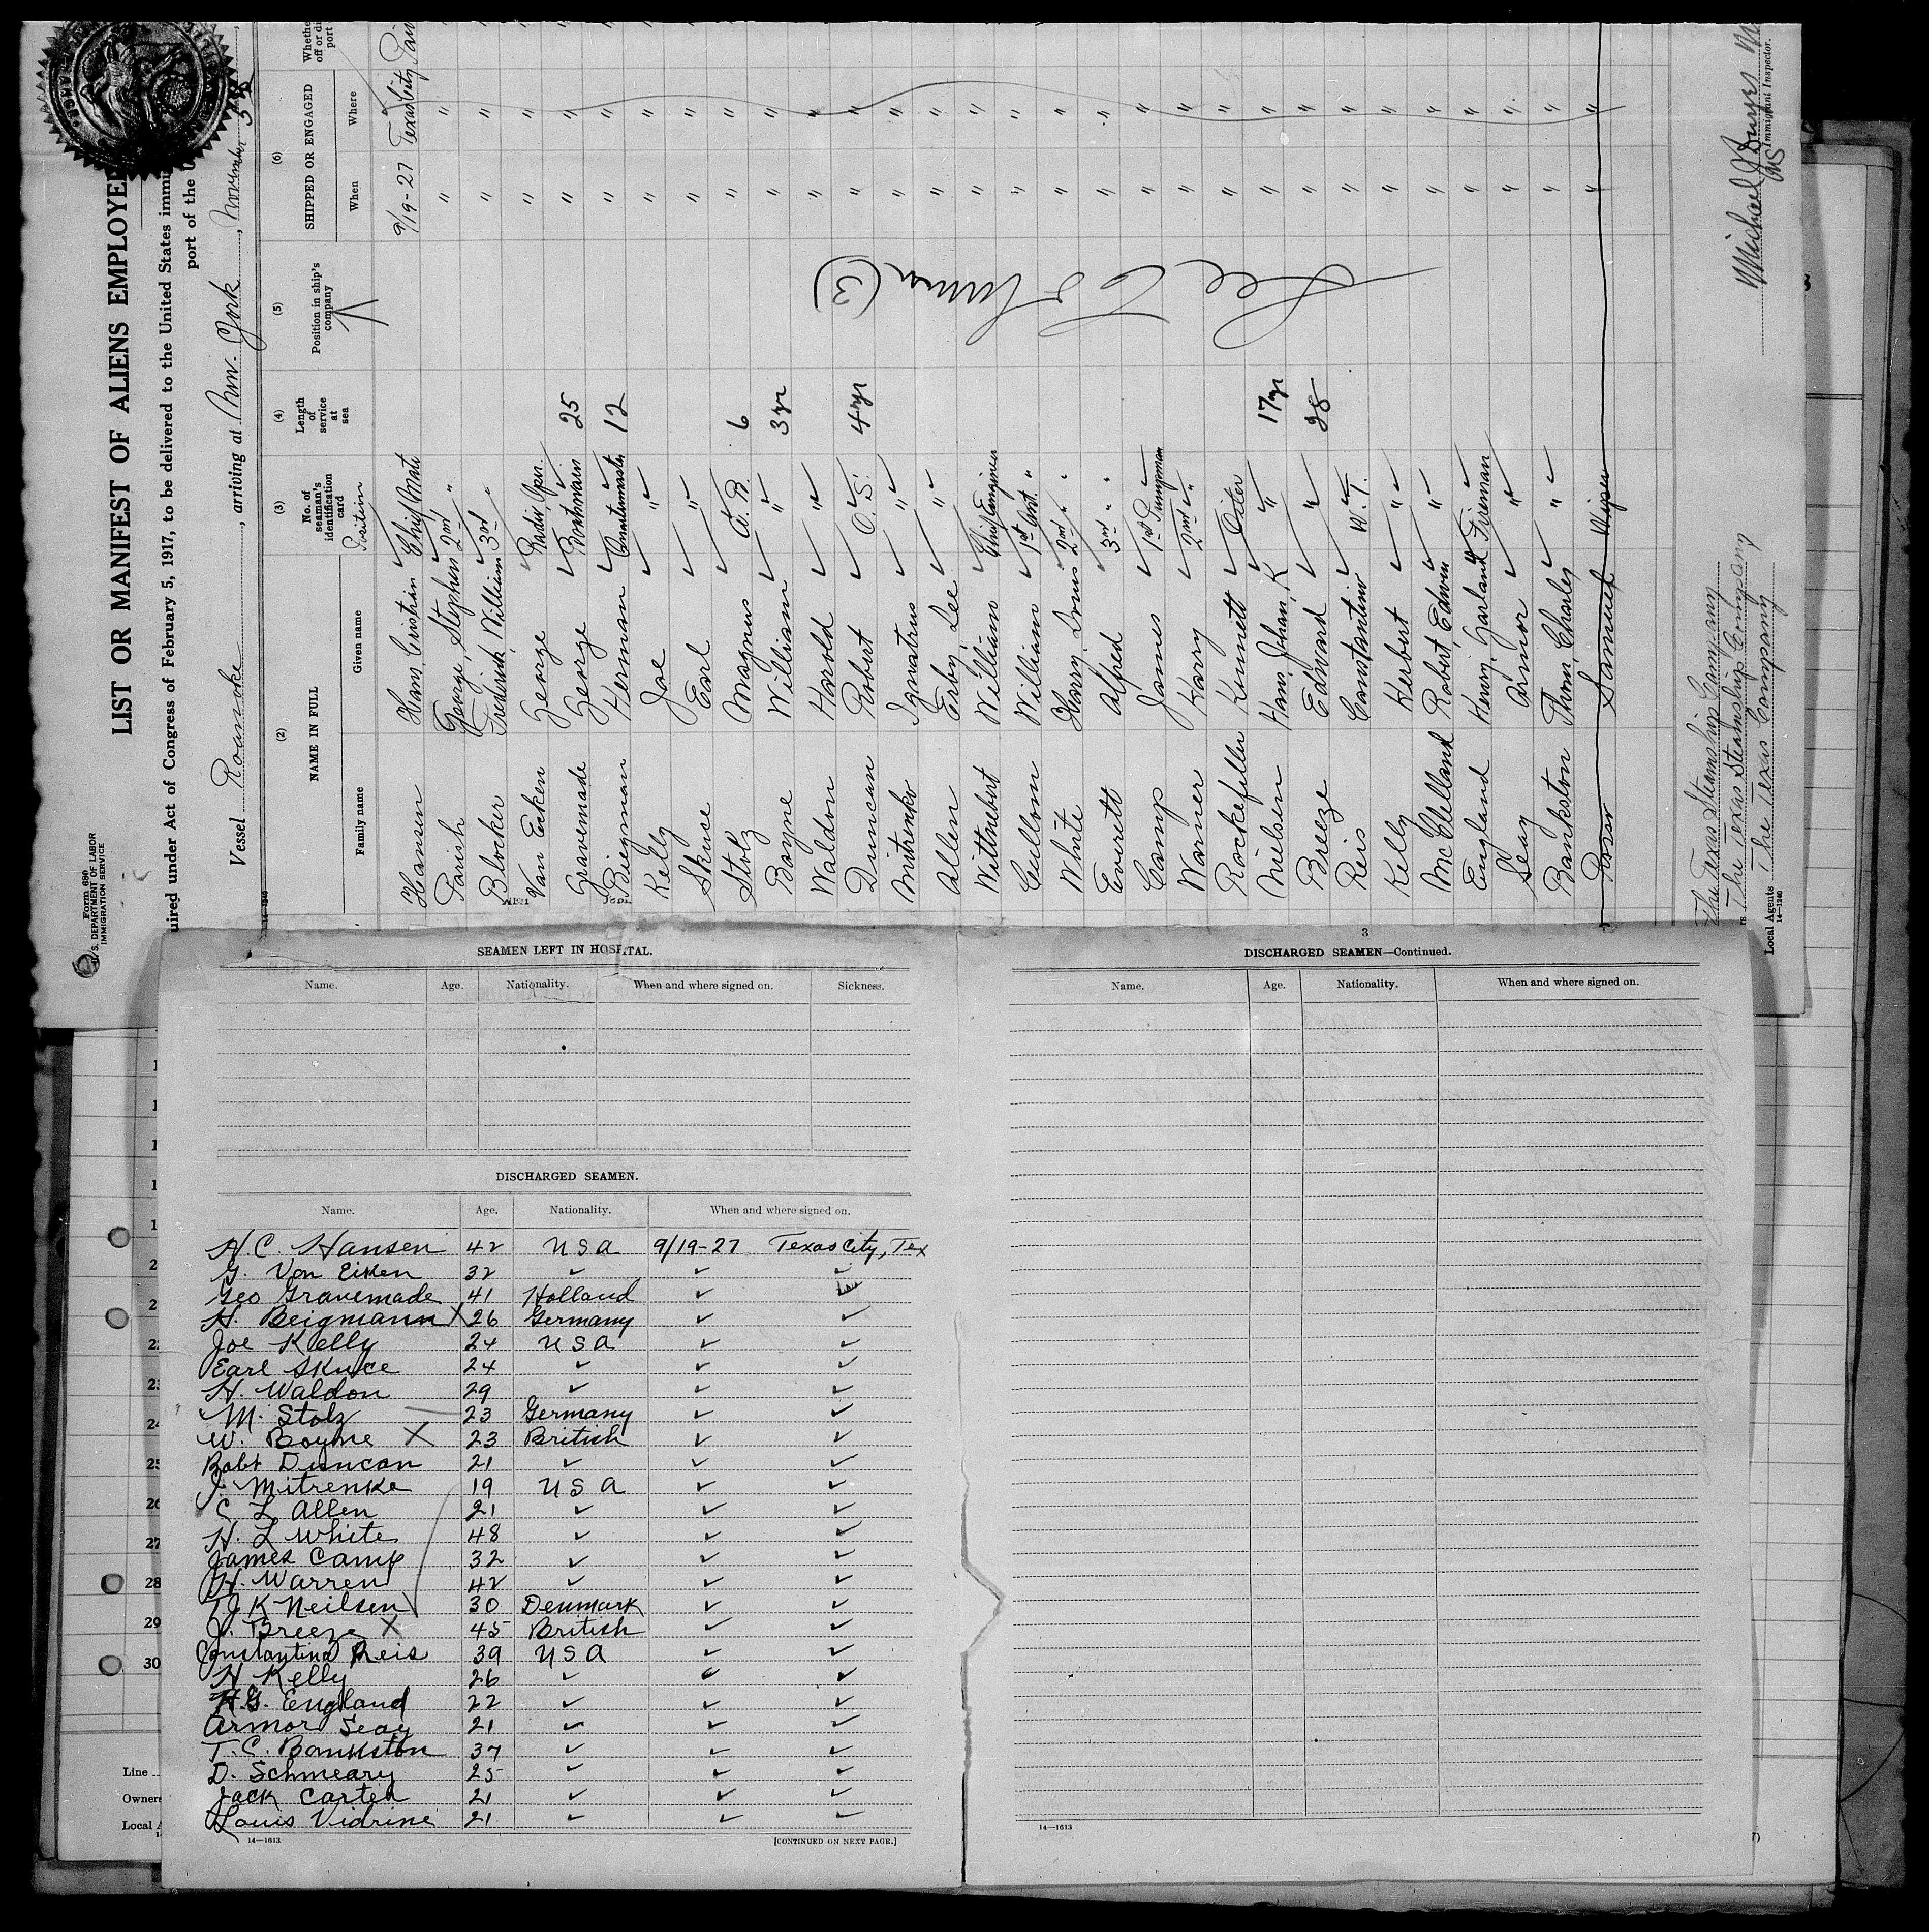 Form 680
U.S. DEPARTMENT OF LABOR
IMMIGRATION SERVICE
LIST OR MANIFEST OF ALIENS EMPLOYE
uired under Act of Congress of February 5, 1917, to be delivered to the United States immi
port of the U
Vessel Roanoke, arriving at New York, November 5th
(2) (3) (4) (5) (6)
NAME IN FULL
No. of seaman's identification card
Position
Length of service at sea
Position in ship's company
SHIPPED OR ENGAGED
Family name Given name When Where
See Column (3)
Hansen Hans, Cristian Chief Mate 9/19-27 Texas City
Parish George, Stephen 2nd " " "
Blocker Frederick, William 3rd " " "
Van Eecken George Radio Opr. " "
Gravemade George Boatswain 25 " "
Biegman Herman Quartermaster 12 " "
Kelly Joe " " "
Skuce Earl " " "
Stolz Magnus A.B. 6 " "
Boyne William " 3 yr " "
Waldon Harold " " "
Duncan Robert O.S. 4 yr " "
Mitrenko Ignatrus " " "
Allen Erby, Lee " " "
Wittnebert William Chief Engineer " "
Cullom William 1st Asst. " " "
White Harry, Louis 2nd " " " "
Everett Alfred 3rd " " " "
Camp James 1st Pumpman " "
Warner Harry 2nd " " "
Rockefeller Kennett Oiler " "
Nielsen Hans, Johan, K " 17 yr " "
Breeze Edward " 28 " "
Reis Constantino W.T. " "
Kelly Herbert " " "
McClelland Robert, Edwin " " "
England Henry, Garland Fireman " "
Seay Armor " " "
Bankston Thom, Charles " " "
Poser Samuel Wiper " "
The Texas Steamship Company
The Texas Steamship Company
Local Agents The Texas Company
14—1240
Immigrant Inspector.
SEAMEN LEFT IN HOSPITAL.
Name. Age. Nationality. When and where signed on. Sickness.
DISCHARGED SEAMEN.
Name. Age. Nationality. When and where signed on.
H. C. Hansen 42 USA 9/19-27 Texas City, Tex
G. Von Eiken 32 ✓ ✓ ✓
Geo Gravemade 41 Holland ✓ ✓
H. Beigmann X 26 Germany ✓ ✓
Joe Kelly 24 USA ✓ ✓
Earl Skuce 24 ✓ ✓ ✓
H. Waldon 29 ✓ ✓ ✓
M. Stolz 23 Germany ✓ ✓
W. Boyne X 23 British ✓ ✓
Robt Duncan 21 ✓ ✓ ✓
J. Mitrenke 19 USA ✓ ✓
E L Allen 21 ✓ ✓ ✓
H. L White 48 ✓ ✓ ✓
James Camp 32 ✓ ✓ ✓
H. Warren 42 ✓ ✓ ✓
T J K Neilsen 30 Denmark ✓ ✓
J. Breeze X 45 British ✓ ✓
Constantino Reis 39 USA ✓ ✓
H Kelly 26 ✓ ✓ ✓
H.G. England 22 ✓ ✓ ✓
Armor Seay 21 ✓ ✓ ✓
T. C. Bankston 37 ✓ ✓ ✓
D. Schmeary 25 ✓ ✓ ✓
Jack Carter 21 ✓ ✓ ✓
Louis Vidrine 21 ✓ ✓ ✓
14—1613 [CONTINUED ON NEXT PAGE.]
3
DISCHARGED SEAMEN—Continued.
Name. Age. Nationality. When and where signed on.
14—1613
26
27
28
29
30
Line
Owners
Local A